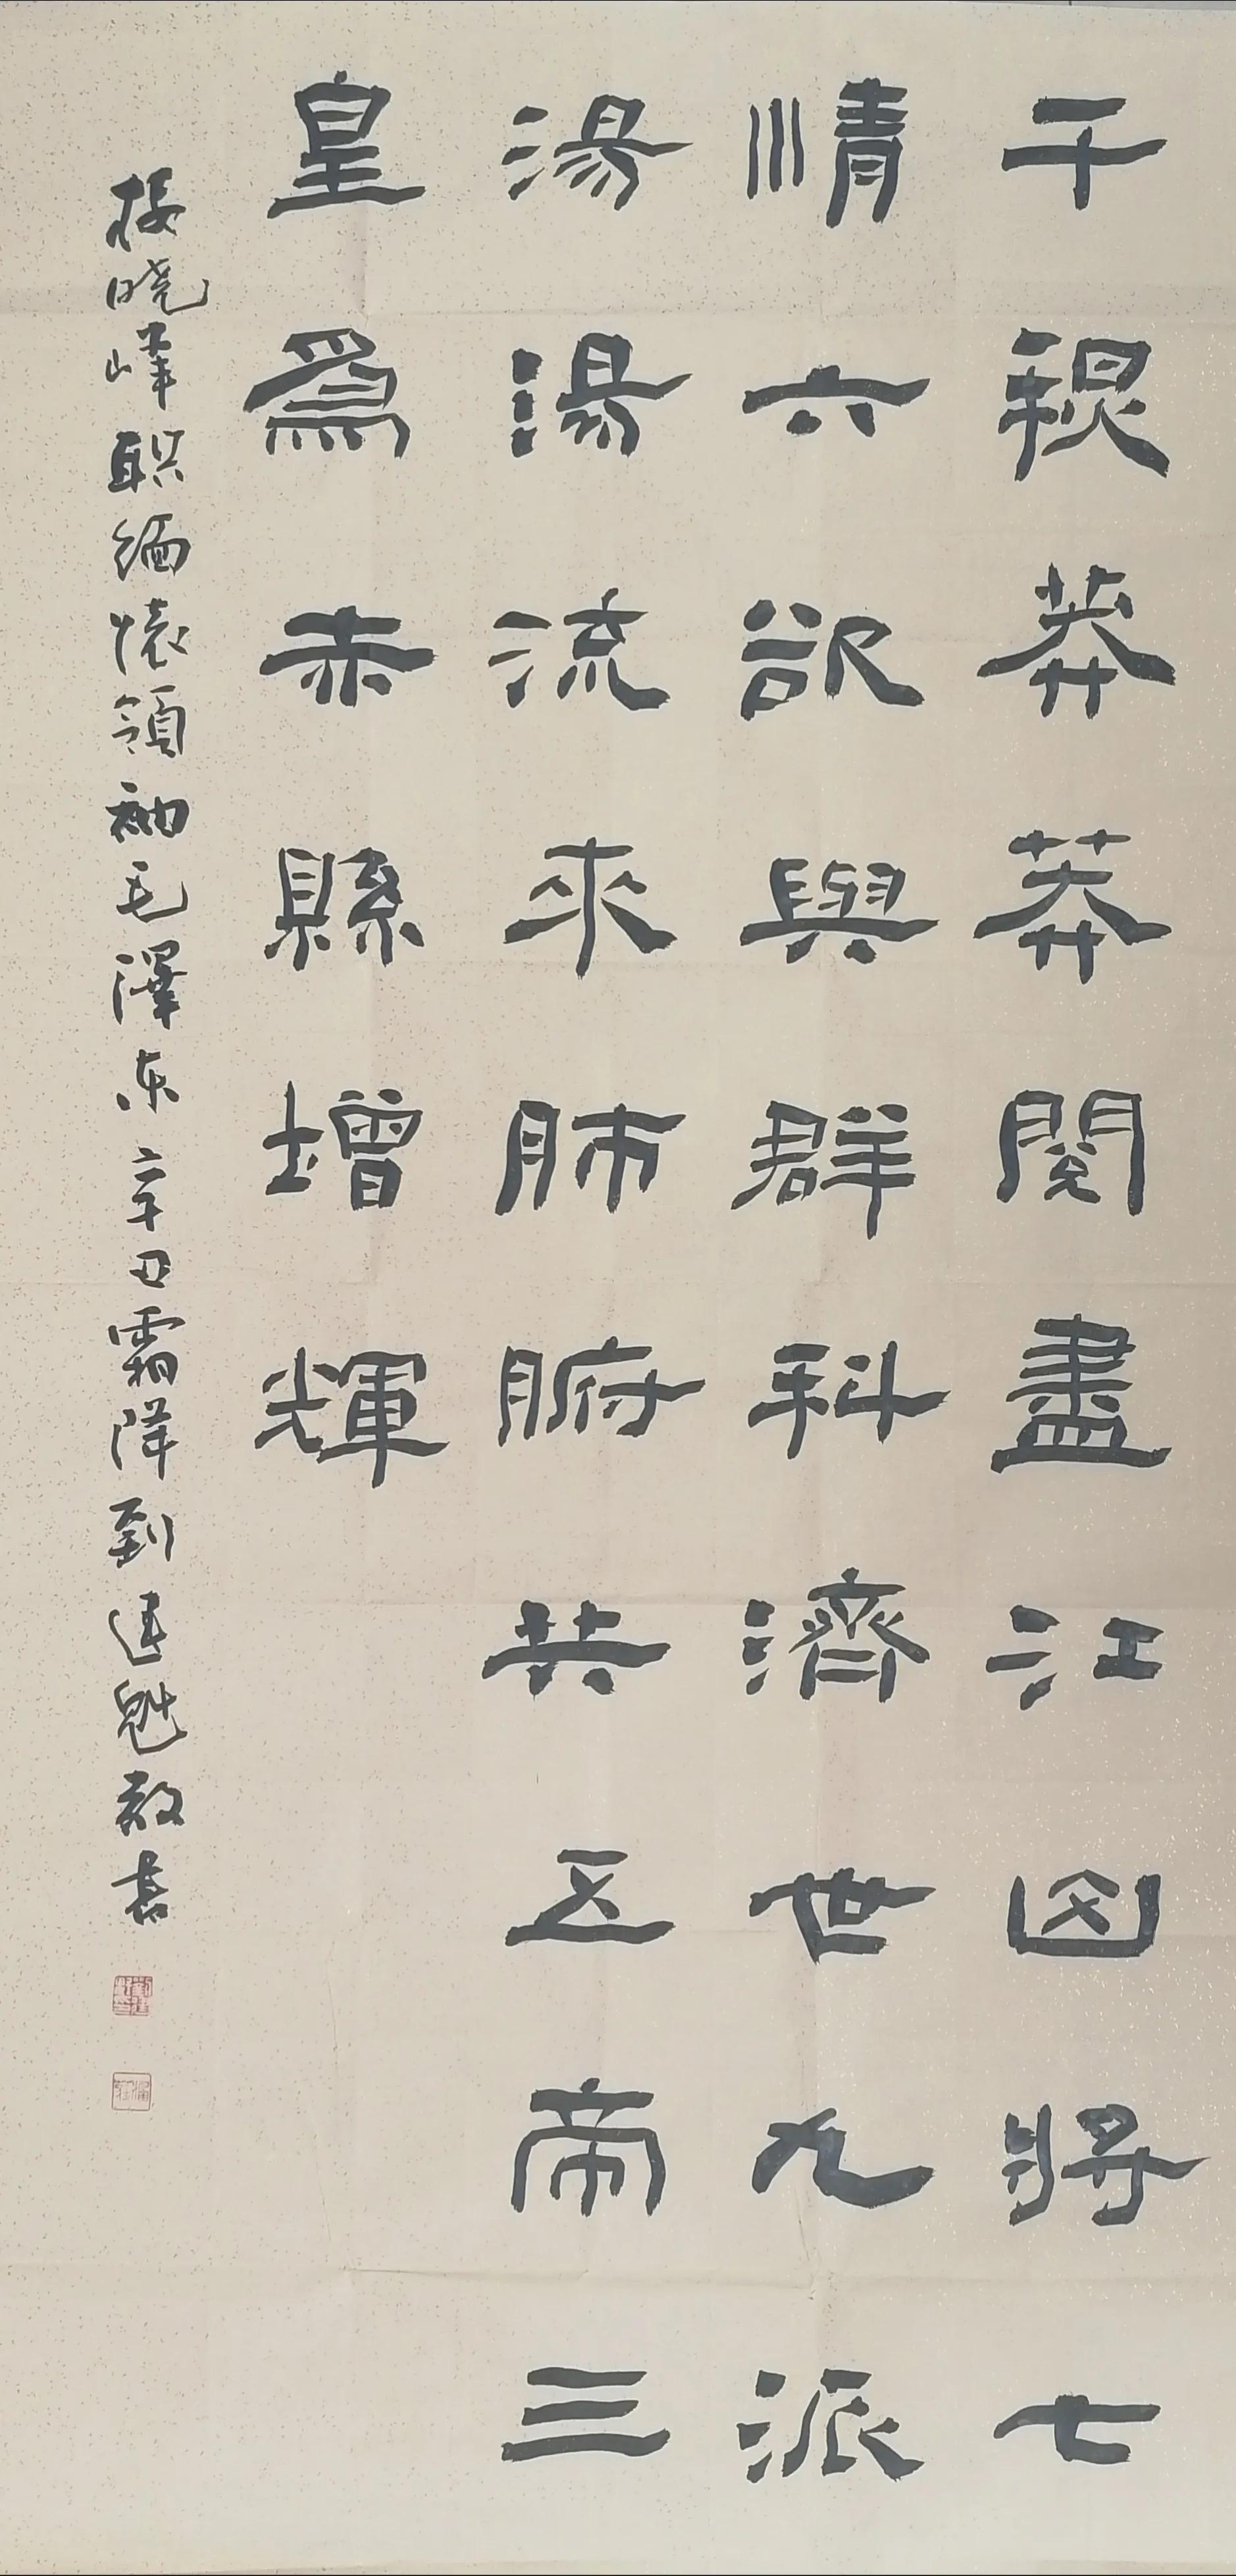 千莽莽閱盡江將七
情六欲與群科濟世九派
湯湯流來肺腑共五帝三
皇為赤縣增輝
接晓峰联缅懷領袖毛澤东辛丑霜降到建魁敬書